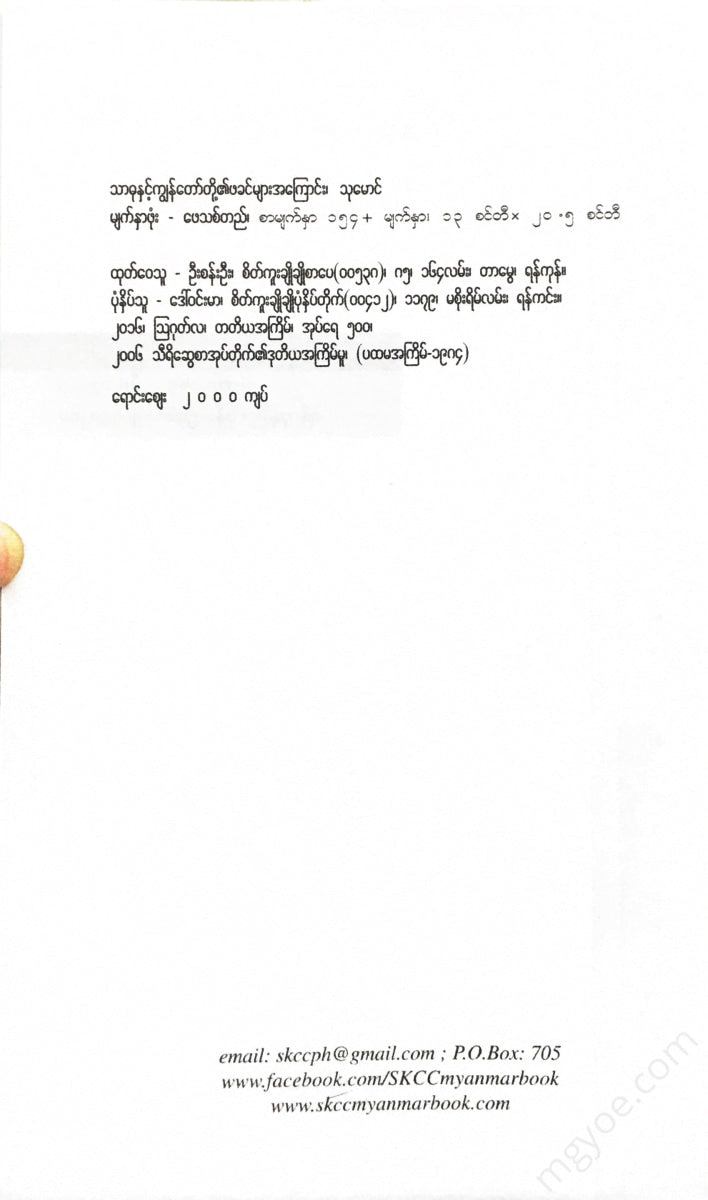 သာဓုနှင့်ကျွန်တော်တို့၏ဖခင်များအကြောင်း၊ သုမောင်
မျက်နှာဖုံး - ဖေသစ်တည်၊ စာမျက်နှာ ၁၅၄ + မျက်နှာ၊ ၁၃ စင်တီ × ၂၀ .၅ စင်တီ
ထုတ်ဝေသူ - ဦးစန်းဦး၊ စိတ်ကူးချိုချိုစာပေ(၀၀၅၃၈)၊ ၈၅၊ ၁၆၄လမ်း၊ တာမွေ၊ ရန်ကုန်။
ပုံနှိပ်သူ - ဒေါ်ဝင်းမာ၊ စိတ်ကူးချိုချိုပုံနှိပ်တိုက်(၀၀၄၁၂)၊ ၁၁၇၉၊ မစိုးရိမ်လမ်း၊ ရန်ကင်း။
၂၀၁၆၊ ဩဂုတ်လ၊ တတိယအကြိမ်၊ အုပ်ရေ ၅၀၀၊
၂၀၀၆ သီရိဆွေစာအုပ်တိုက်၏ဒုတိယအကြိမ်မူ၊ (ပထမအကြိမ်-၁၉၈၄)
ရောင်းဈေး ၂ ၀ ၀ ၀ ကျပ်
email: skccph@gmail.com ; P.O.Box: 705
www.facebook.com/SKCCmyanmarbook
www.skccmyanmarbook.com
mgyoe.com